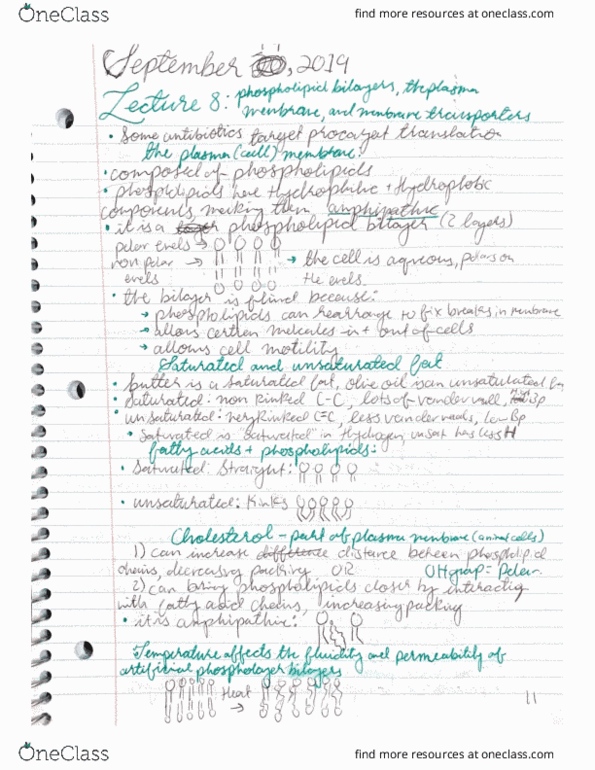 OneClass
find more resources at oneclass.com
September , 2019
Lecture 8: phospholipid bilayers, the plasma
membrane, and membrane transporters
• Some antibiotics target translation
the plasma (cell) membrane:
• composed of phospholipids
• phospholipids have Hydrophilic + Hydrophobic
components, making them amphipathic
• it is a phospholipid bilayer (2 layers)
polar
non polar → → the cell is aqueous, polar on
the
• the bilayer is fluid because:
→ phospholipids can rearrange to fix breaks in membrane
→ allows certen in + out of cells
→ allows cell motility
Saturated and unsaturated fat
• butter is a saturated fat, olive oil is an unsaturated
• saturated: non kinked C-C, lots of van der
• unsaturated: kinked C=C, less van der
• saturated is "saturated" in Hydrogen, has less H
fatty acids + phospholipids:
• Saturated: Straight:
• unsaturated: Kinks
Cholesterol - part of plasma membrane (animal cells)
1) can increase distance between
chains, decreasing packing OR OH group = Polar
2) can bring phospholipids closer by interacting
with fatty acid chains, increasing packing
• it is amphipathic:
Temperature affects the fluidity and permeability of
artificial bilayers
Heat
→
11
OneClass
find more resources at oneclass.com